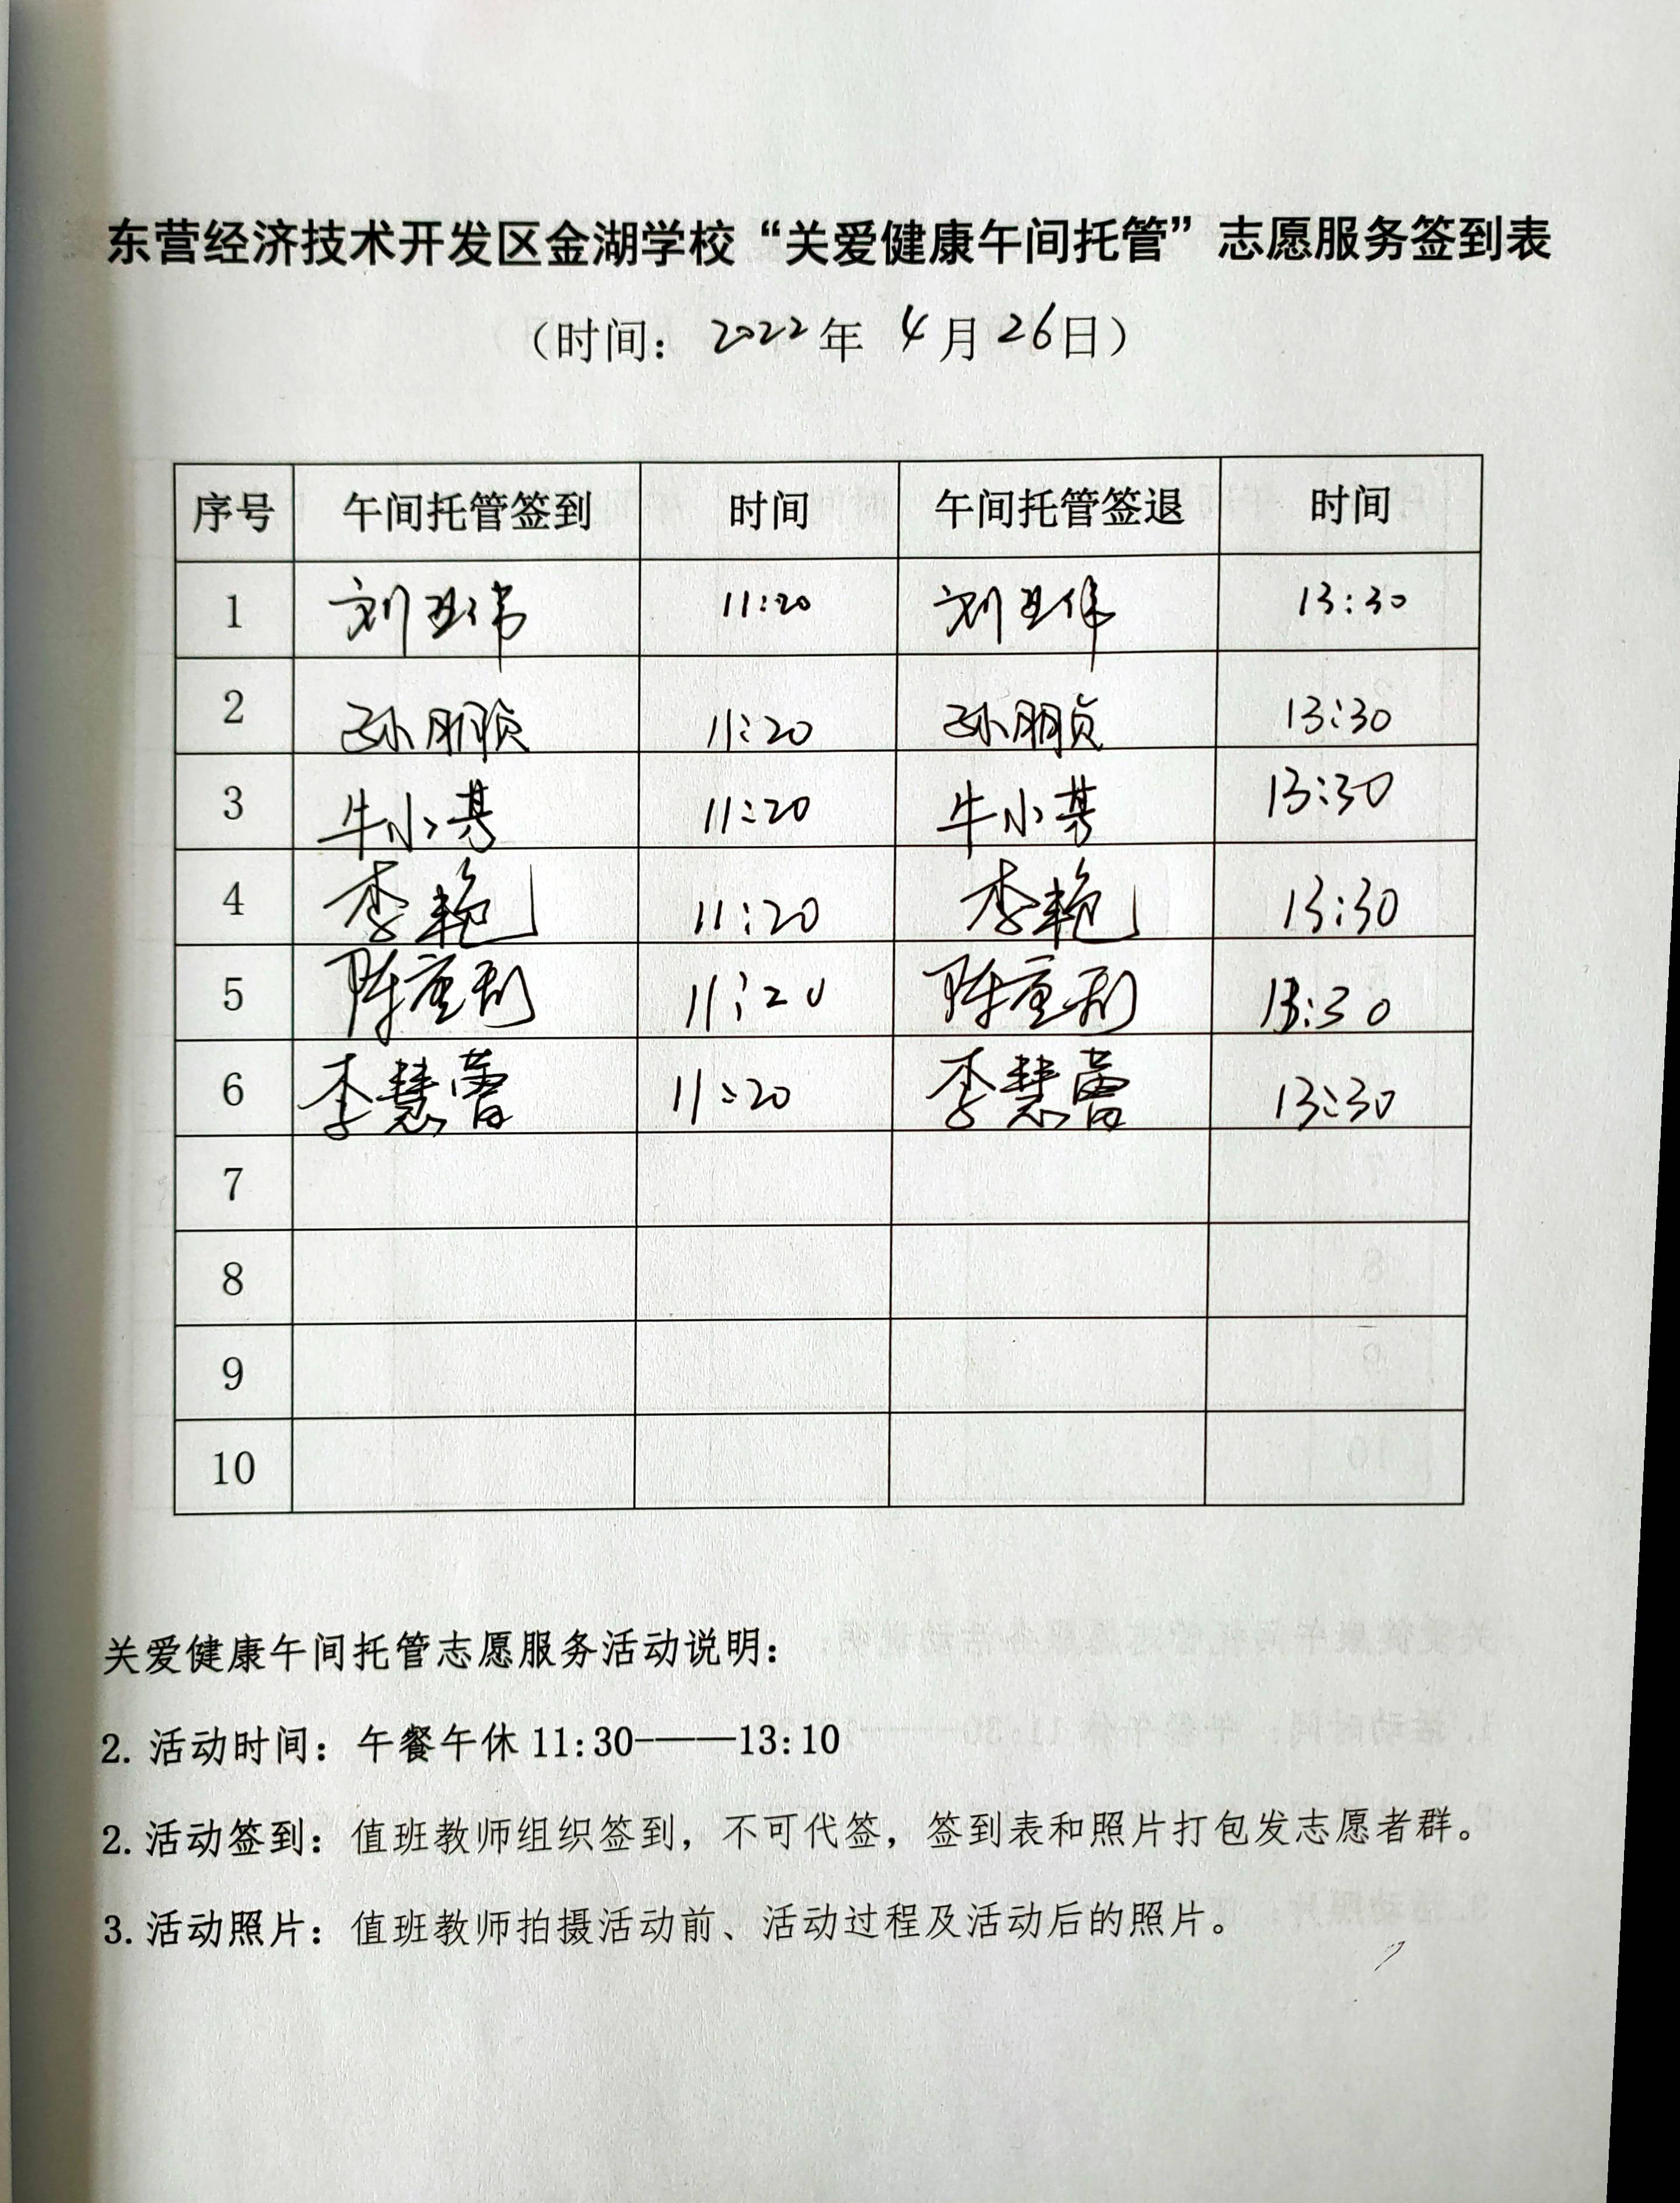 东营经济技术开发区金湖学校“关爱健康午间托管”志愿服务签到表
（时间：2022年 4月26日）
序号 午间托管签到 时间 午间托管签退 时间
1 刘卫伟 11:20 刘卫伟 13:30
2 孙朋贞 11:20 孙朋贞 13:30
3 牛小 11:20 牛小 13:30
4 李艳 11:20 李艳 13:30
5 陈 11:20 陈 13:30
6 李慧蕾 11:20 李慧蕾 13:30
7
8
9
10
关爱健康午间托管志愿服务活动说明：
2. 活动时间：午餐午休 11:30———13:10
2. 活动签到：值班教师组织签到，不可代签，签到表和照片打包发志愿者群。
3. 活动照片：值班教师拍摄活动前、活动过程及活动后的照片。